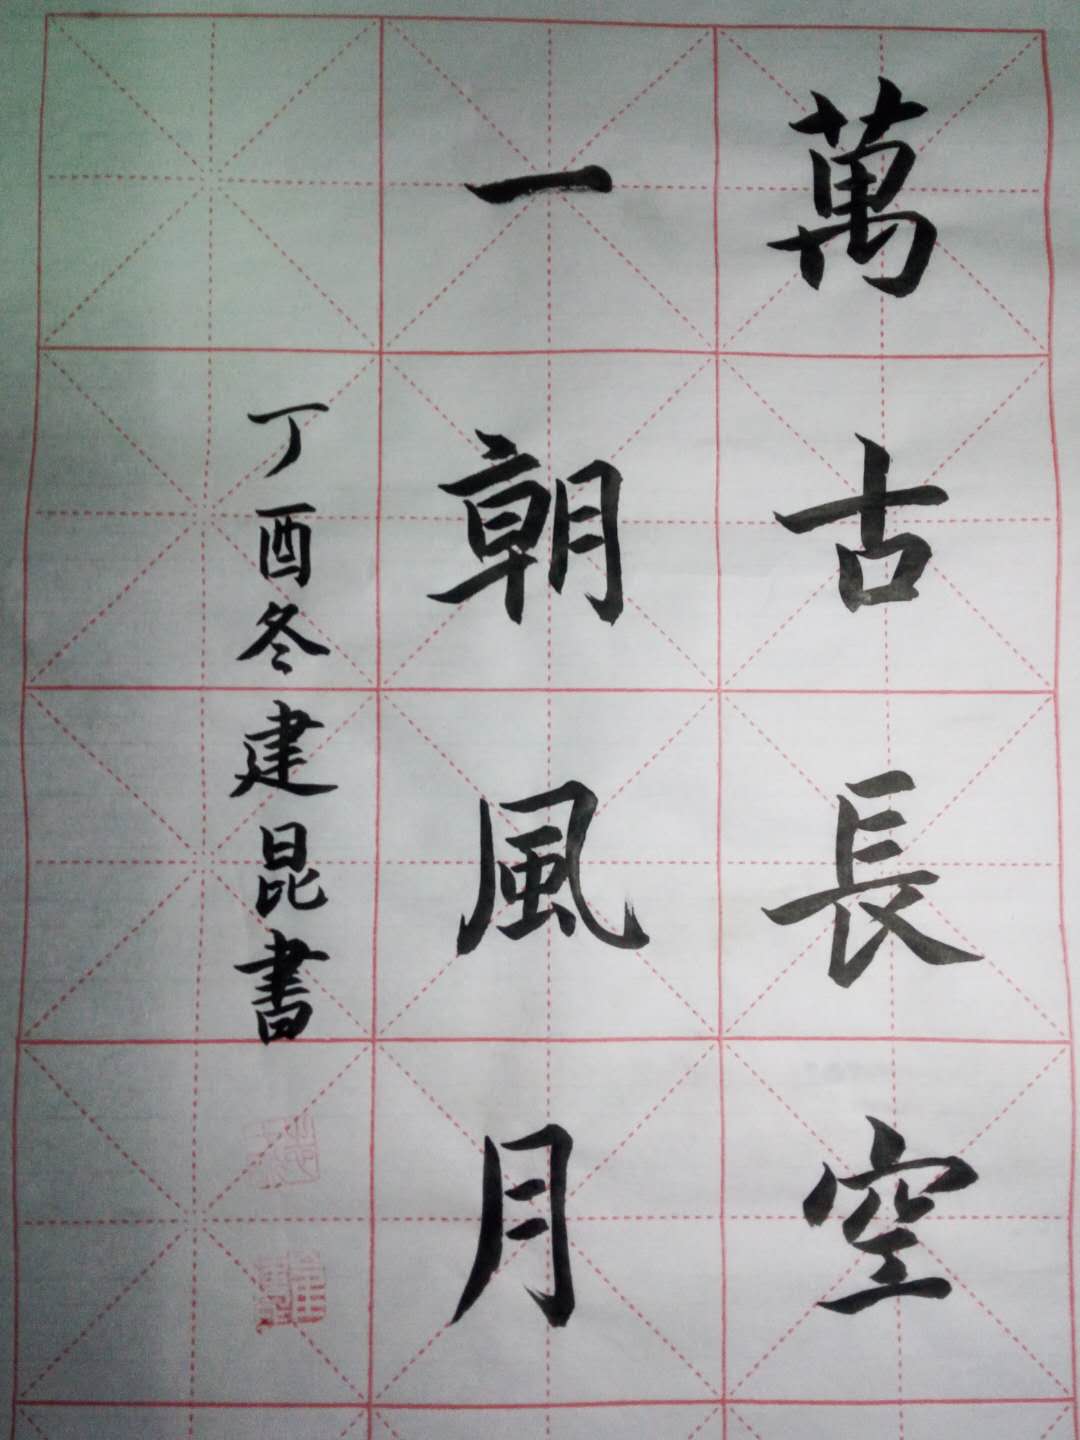 萬古長空
一朝風月
丁酉冬建昆書